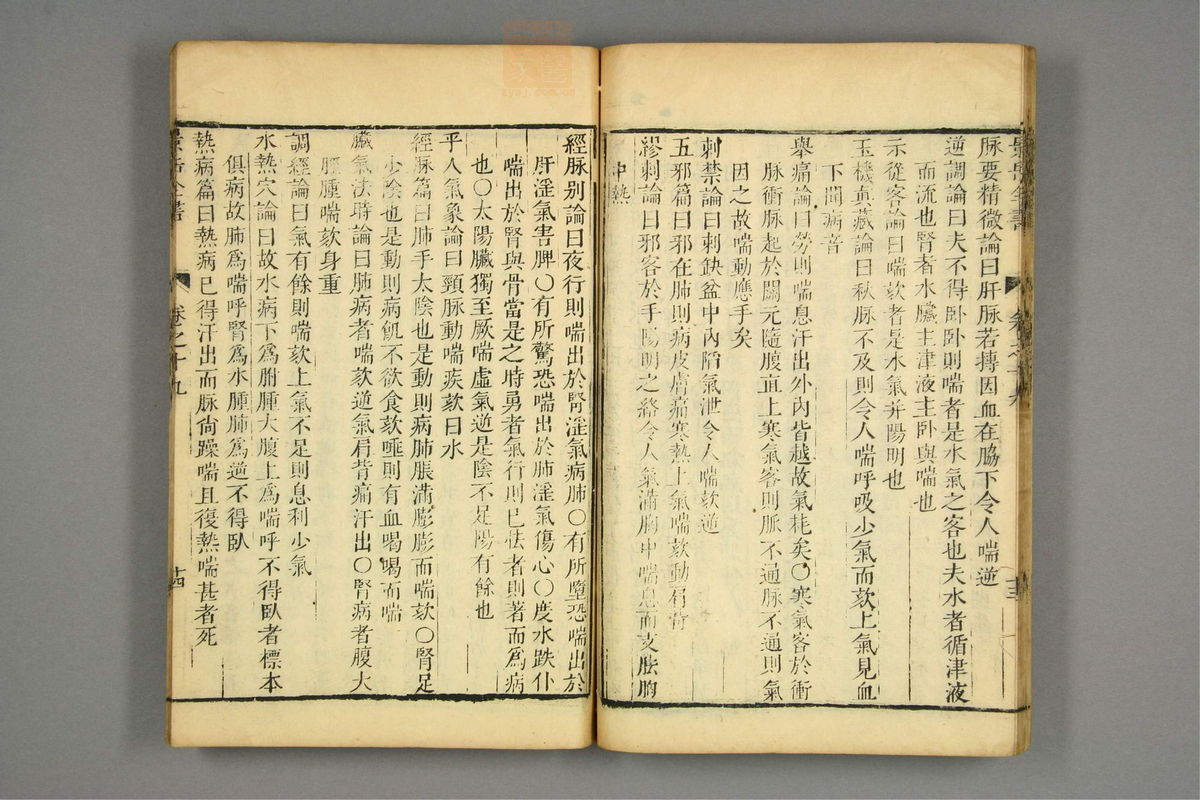 脉要精微論曰肝脉若搏因血在脇下令人喘逆
逆調論曰夫不得卧卧則喘者是水氣之客也夫水者循津液
而流也腎者水臟主津液主卧與喘也
示從容論曰喘欬者是水氣并陽明也
玉機真藏論曰秋脉不及則令人喘呼吸少氣而欬上氣見血
下聞病音
舉痛論曰勞則喘息汗出外內皆越故氣耗矣○寒氣客於衝
脉衝脉起於關元隨腹直上寒氣客則脈不通脉不通則氣
因之故喘動應手矣
刺禁論曰刺缺盆中內陷氣泄令人喘欬逆
五邪篇曰邪在肺則病皮膚痛寒熱上氣喘欬動肩背
繆刺論曰邪客於手陽明之絡令人氣滿胸中喘息而支胠胸
中熱
經脉别論曰夜行則喘出於腎淫氣病肺○有所墮恐喘出於
肝淫氣害脾○有所驚恐喘出於肺淫氣傷心○度水跌仆
喘出於腎與骨當是之時勇者氣行則已怯者則著而爲病
也○太陽臟獨至厥喘虛氣逆是陰不足陽有餘也
平人氣象論曰頸脉動喘疾欬曰水
經脉篇曰肺手太陰也是動則病肺脹滿膨膨而喘欬○腎足
少陰也是動則病飢不欲食欬唾則有血喝喝而喘
臟氣法時論曰肺病者喘欬逆氣肩背痛汗出○腎病者腹大
脛腫喘欬身重
調經論曰氣有餘則喘欬上氣不足則息利少氣
水熱穴論曰故水病下爲胕腫大腹上爲喘呼不得臥者標本
俱病故肺爲喘呼腎爲水腫肺爲逆不得臥
熱病篇曰熱病已得汗出而脉尙躁喘且復熱喘甚者死
卷之十九
十四